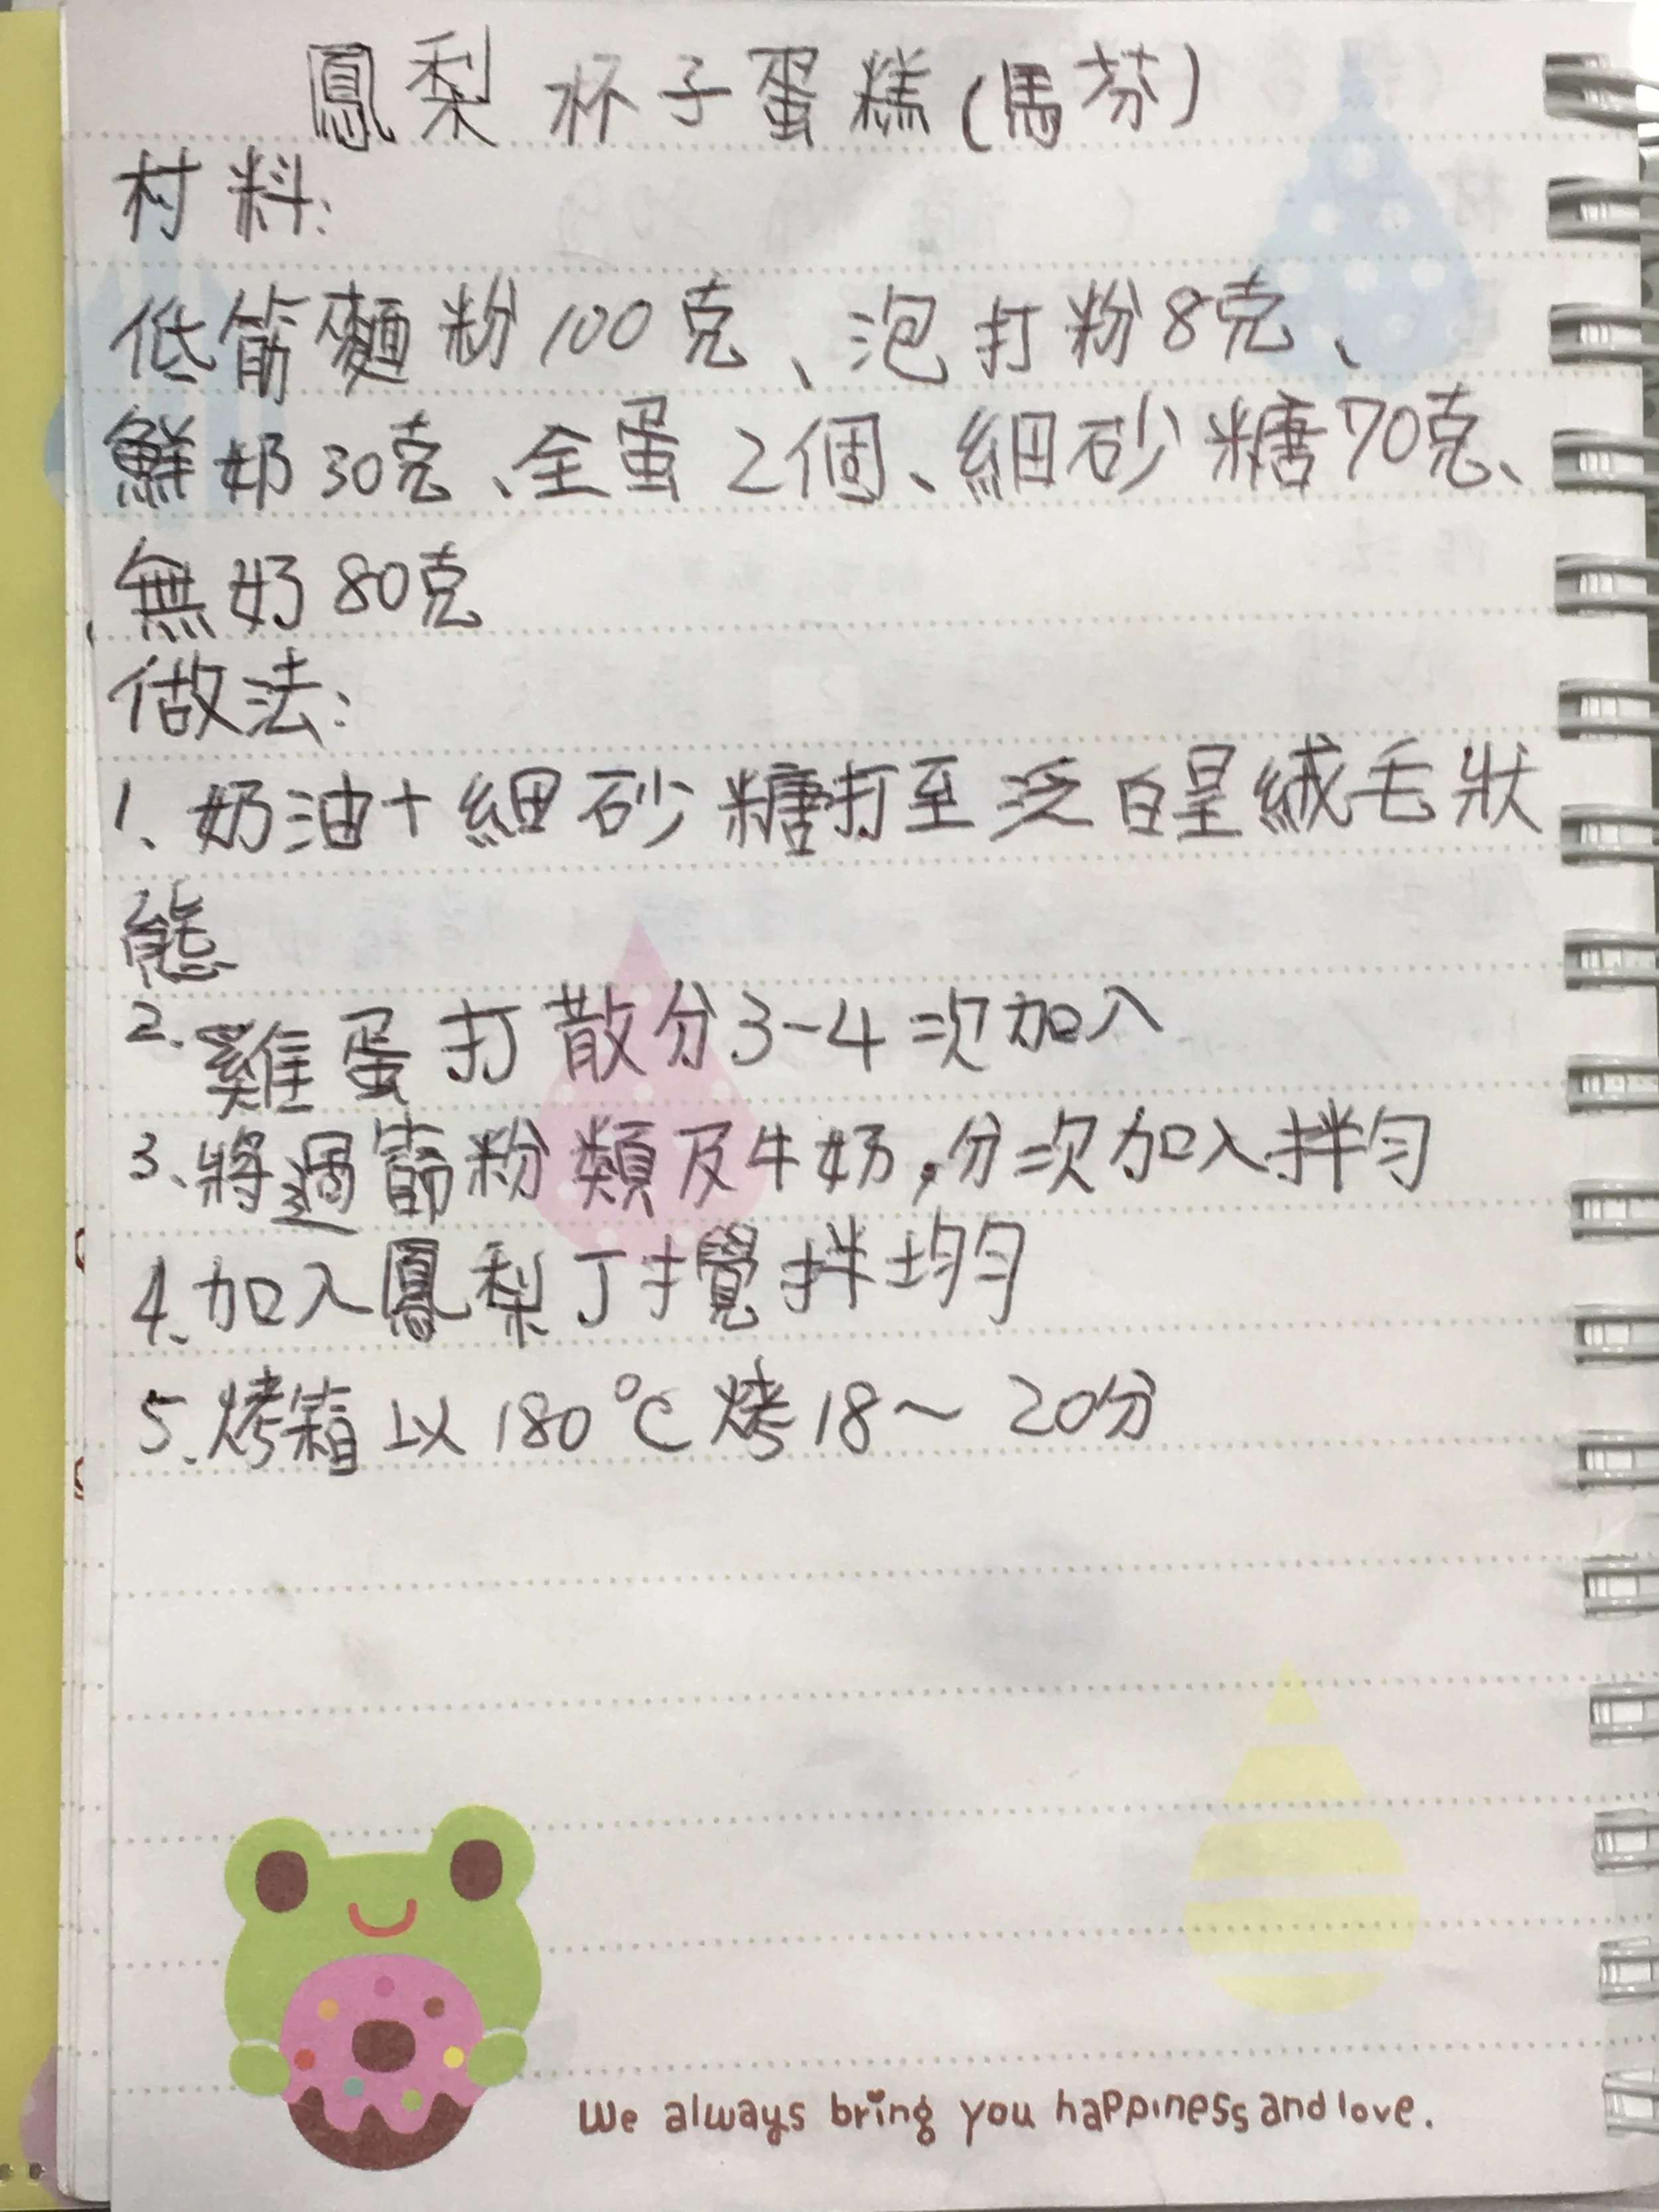 鳳梨杯子蛋糕(馬芬)
材料:
低筋麵粉100克、泡打粉8克、
鮮奶30克、全蛋2個、細砂糖70克、
無奶80克
做法:
1、奶油+細砂糖打至泛白呈絨毛狀
態
2.雞蛋打散分3-4次加入
3、將過篩粉類及牛奶,分次加入拌勻
4、加入鳳梨丁攪拌均勻
5、烤箱以180℃烤18~20分
We always bring you happiness and love.